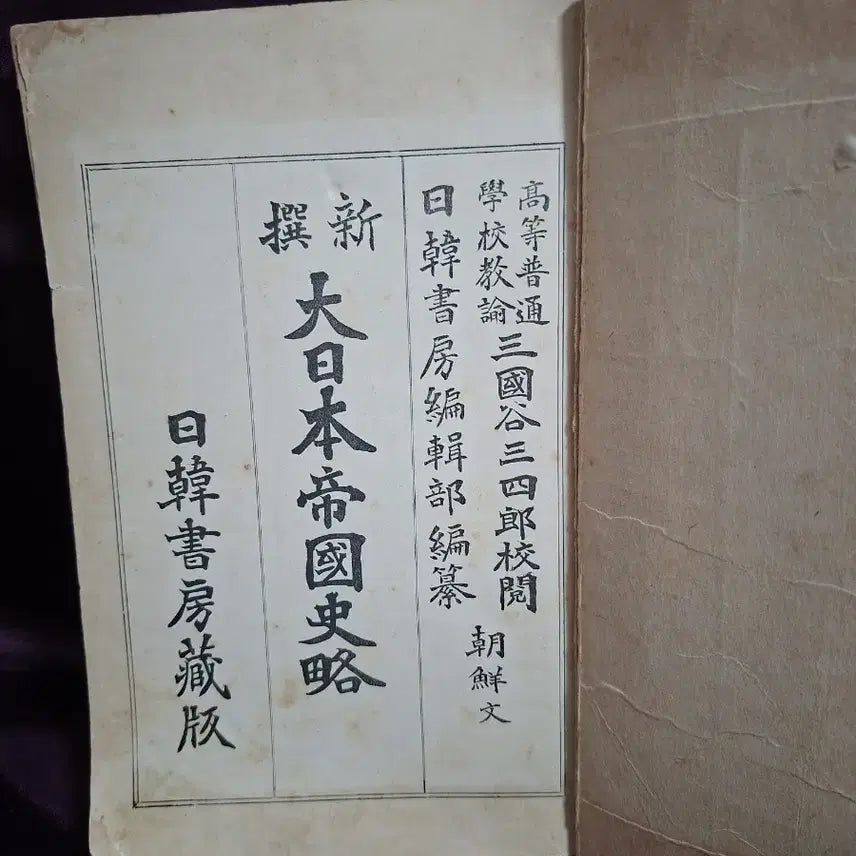 高等普通
學校教諭
三國谷三四郎校閱
日韓書房編輯部編纂
朝鮮文
新撰
大日本帝國史略
日韓書房藏版